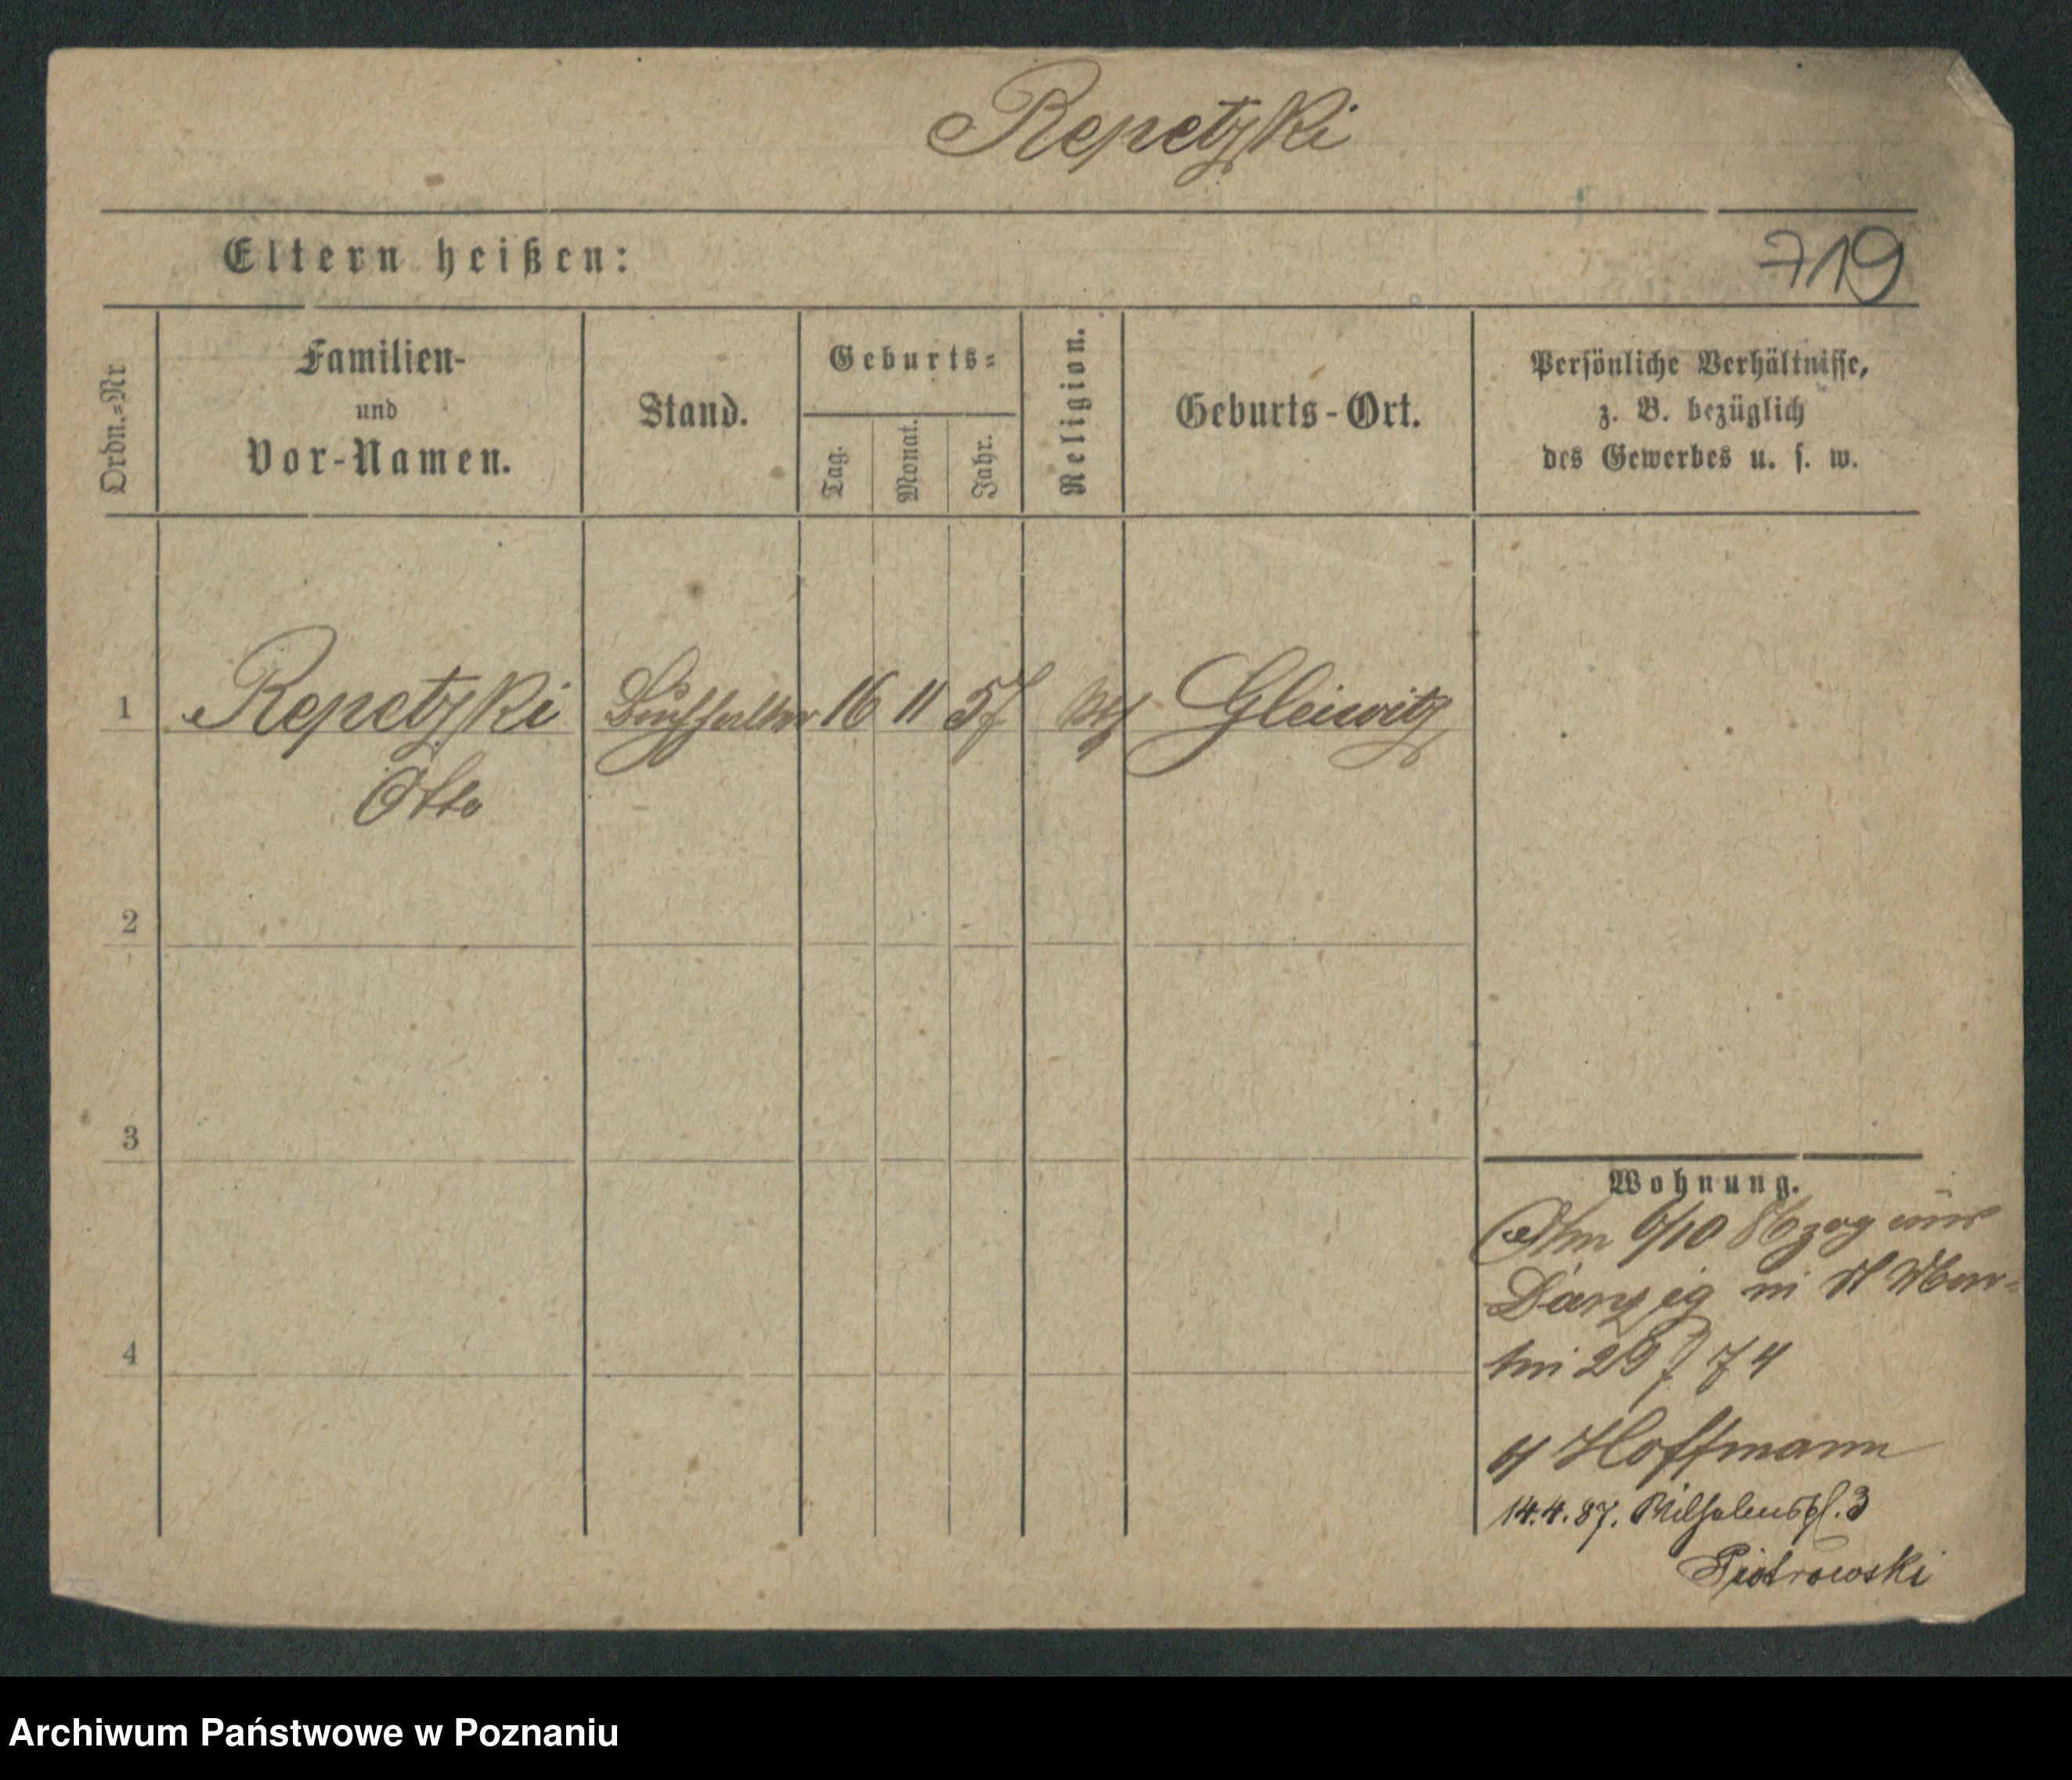 Repetzki
Eltern heißen:
719
Ordn.=Nr
Familien-
und
Vor-Namen.
Stand.
Geburts=
Tag.
Monat.
Jahr.
Religion.
Geburts-Ort.
Persönliche Verhältnisse,
z. B. bezüglich
des Gewerbes u. s. w.
1
Repetzki
Otto
Buchhalter
16
11
57
Gleiwitz
2
3
4
Wohnung.
Am 6/10 86 zog aus
Danzig in St Mar-
tin 29 74
Hoffmann
14.4.87. Wilhelmspl. 3
Piotrowski
Archiwum Państwowe w Poznaniu